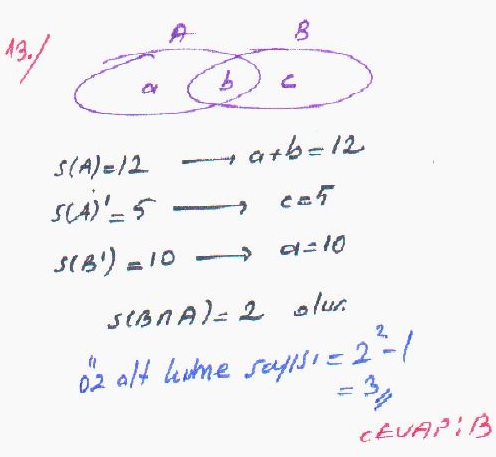 13./
A B
a b c
s(A)=12 → a+b=12
s(A)'=5 → c=5
s(B')=10 → a=10
s(B∩A)=2 olur.
öz alt küme sayısı = 2²-1
= 3//
CEVAP: B